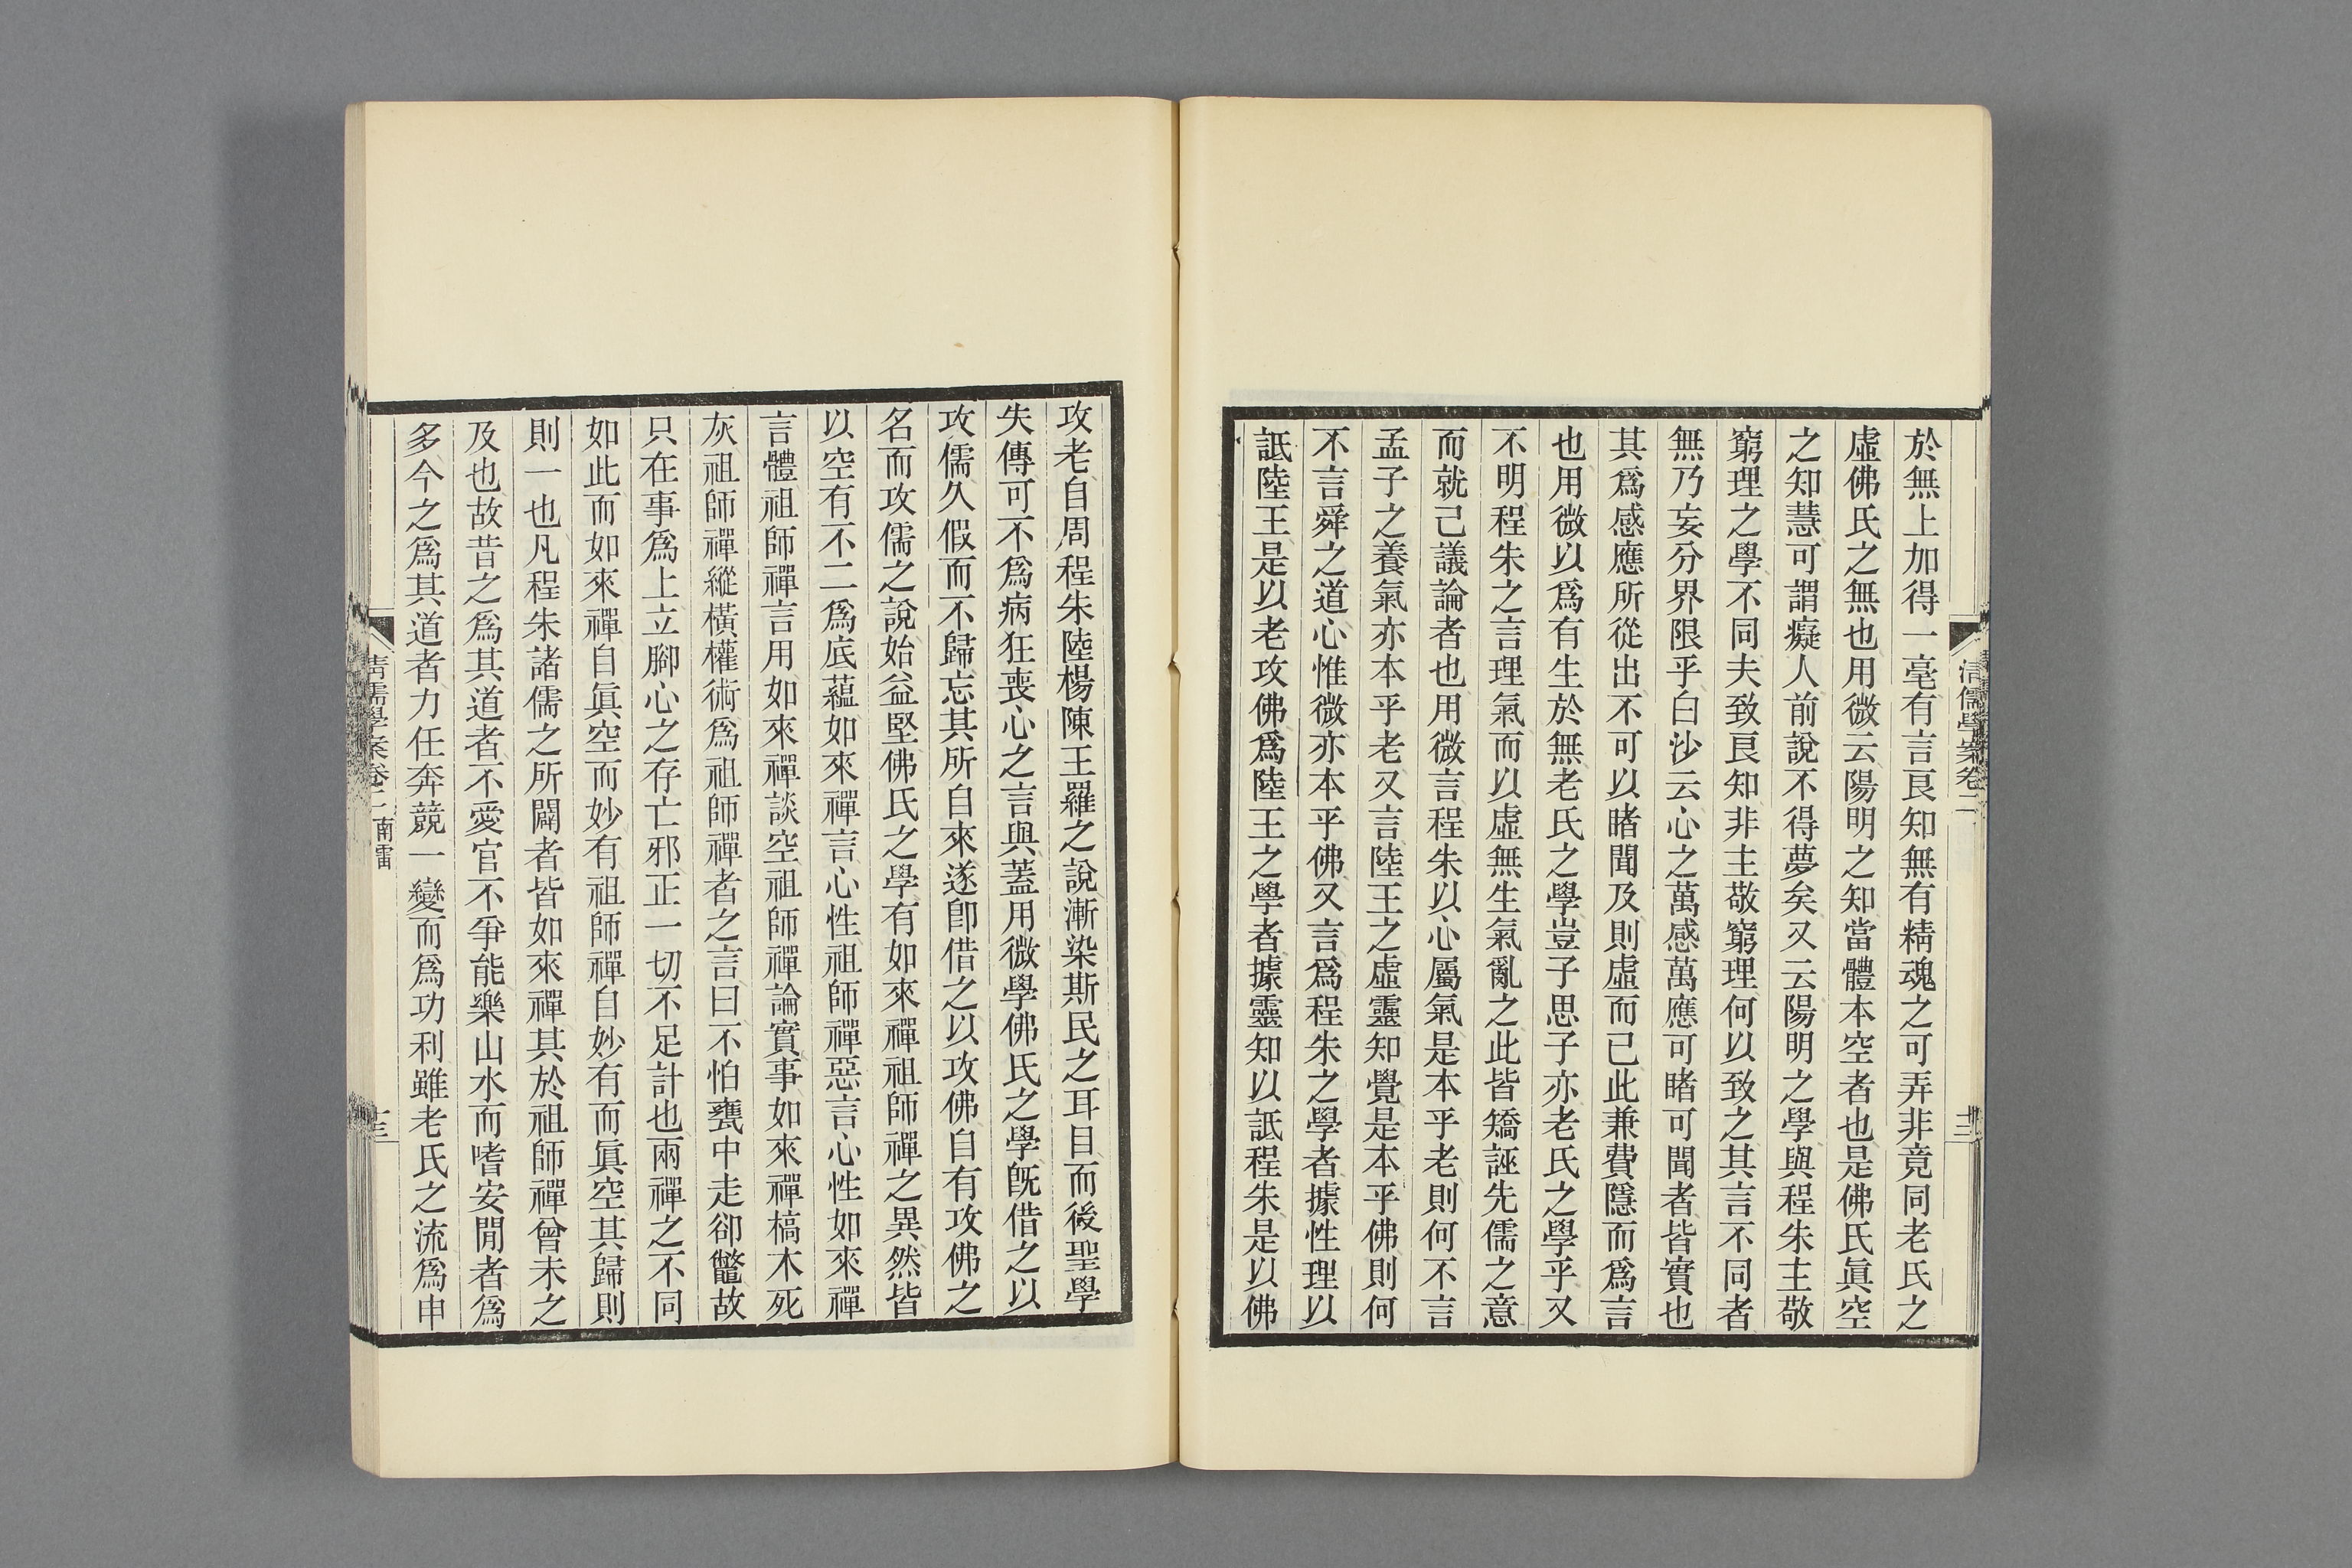 清儒學案卷二
於無上加得一毫有言良知無有精魂之可弄非竟同老氏之
虛佛氏之無也用微云陽明之知當體本空者也是佛氏眞空
之知慧可謂癡人前說不得夢矣又云陽明之學與程朱主敬
窮理之學不同夫致良知非主敬窮理何以致之其言不同者
無乃妄分界限乎白沙云心之萬感萬應可睹可聞者皆實也
其爲感應所從出不可以睹聞及則虛而已此兼費隱而爲言
也用微以爲有生於無老氏之學豈子思子亦老氏之學乎又
不明程朱之言理氣而以虛無生氣亂之此皆矯誣先儒之意
而就己議論者也用微言程朱以心屬氣是本乎老則何不言
孟子之養氣亦本乎老又言陸王之虛靈知覺是本乎佛則何
不言舜之道心惟微亦本乎佛又言爲程朱之學者據性理以
詆陸王是以老攻佛爲陸王之學者據靈知以詆程朱是以佛
攻老自周程朱陸楊陳王羅之說漸染斯民之耳目而後聖學
失傳可不爲病狂喪心之言與蓋用微學佛氏之學旣借之以
攻儒久假而不歸忘其所自來遂卽借之以攻佛自有攻佛之
名而攻儒之說始益堅佛氏之學有如來禪祖師禪之異然皆
以空有不二爲底蘊如來禪言心性祖師禪惡言心性如來禪
言體祖師禪言用如來禪談空祖師禪論實事如來禪槁木死
灰祖師禪縱橫權術爲祖師禪者之言曰不怕甕中走卻鼈故
只在事爲上立腳心之存亡邪正一切不足計也兩禪之不同
如此而如來禪自眞空而妙有祖師禪自妙有而眞空其歸則
則一也凡程朱諸儒之所闢者皆如來禪其於祖師禪曾未之
及也故昔之爲其道者不愛官不爭能樂山水而嗜安閒者爲
多今之爲其道者力任奔競一變而爲功利雖老氏之流爲申
清儒學案卷二 南雷
十三